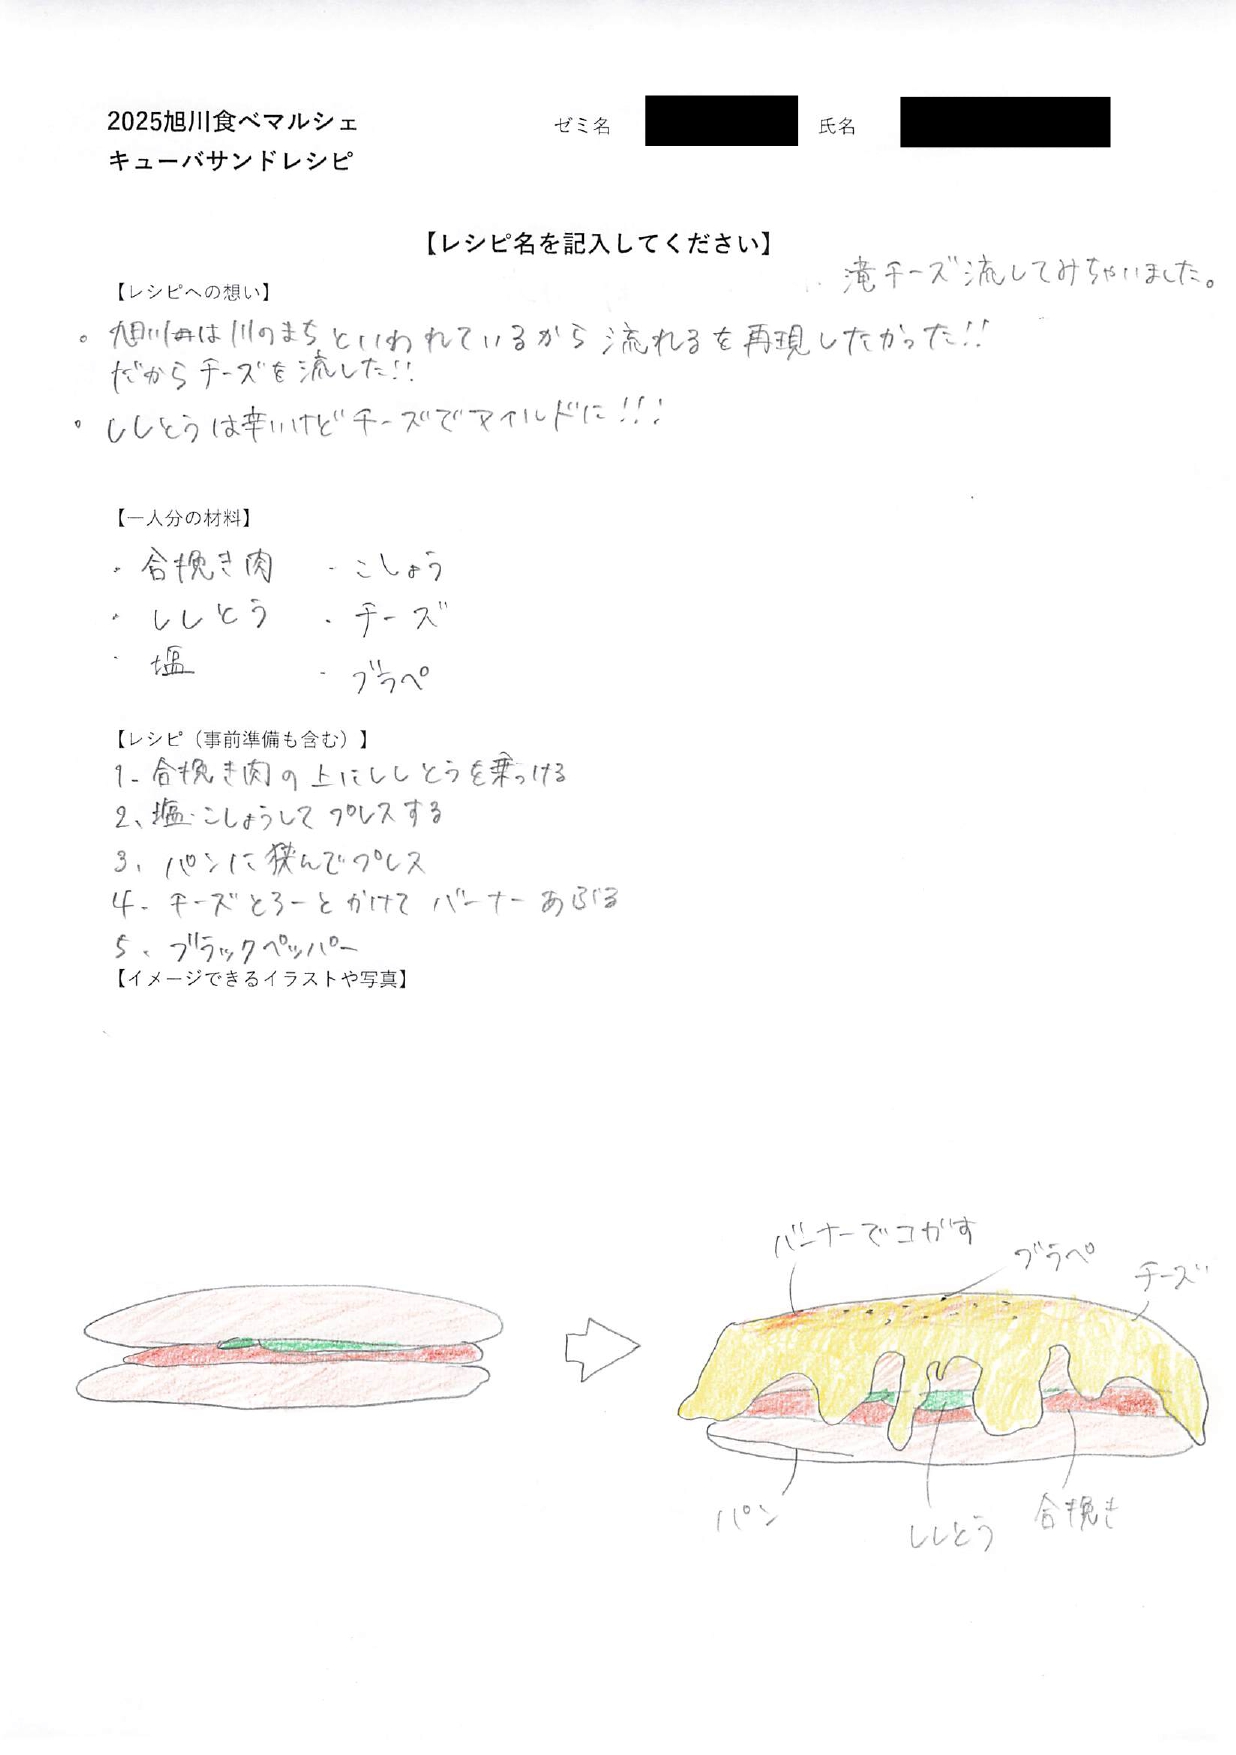 2025旭川食べマルシェ
キューバサンドレシピ
ゼミ名
氏名
【レシピ名を記入してください】
滝チーズ流してみちゃいました。
【レシピへの想い】
。旭川は川のまちといわれているから流れるを再現したかった!!
だからチーズを流した!!
。ししとうは辛いけどチーズでマイルドに!!!
【一人分の材料】
・合挽き肉 ・こしょう
・ししとう ・チーズ
・塩 ・ブラペ
【レシピ（事前準備も含む）】
1- 合挽き肉の上にししとうを乗っける
2、塩・こしょうしてプレスする
3、パンに挟んでプレス
4- チーズとろーとかけてバーナーあぶる
5、ブラックペッパー
【イメージできるイラストや写真】
バーナーでコがす
ブラペ
チーズ
パン
ししとう
合挽き